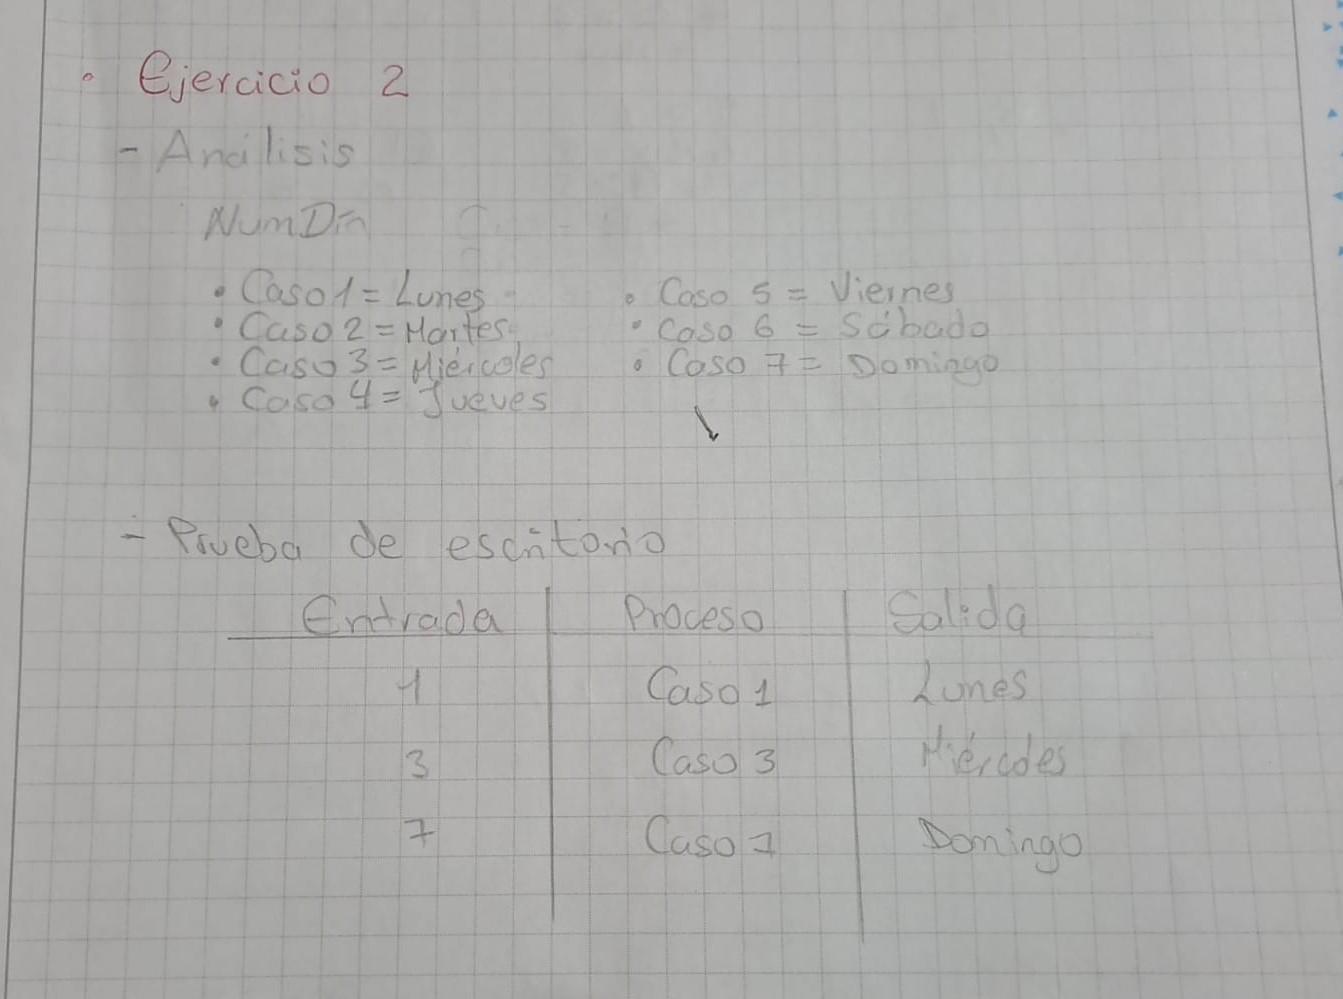 • Ejercicio 2
- Análisis
NumDia
• Caso 1 = Lunes
• Caso 2 = Martes
• Caso 3 = Miércoles
• Caso 4 = Jueves
• Caso 5 = Viernes
• Caso 6 = Sábado
• Caso 7 = Domingo
- Prueba de escritorio
Entrada Proceso Salida
1 Caso 1 Lunes
3 Caso 3 Miércoles
7 Caso 7 Domingo